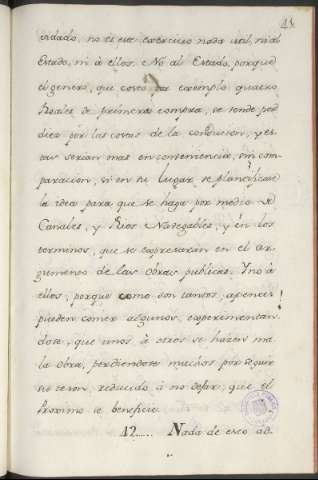 45
cidado, no és este exercicio nada util, ni al
Estado, ni à ellos. No al Estado, porque
el genero, que costó por exemplo quatro
Reales de primera compra, se vende por
diez por las costas de la conducion, y es-
tas serian mas en conveniencia, sin com-
paracion, si en su lugar se plantificase
la idea para que se haga por medio de
Canales, y Rios Navegables, y en los
terminos, que se expresarán en el ar-
gumento de las obras publicas. Y no à
ellos, porque como son tantos, apenas
pueden comer algunos, experimentan-
dose, que unos à otros se hazen ma-
la obra, perdiendose muchos por seguir
su teson, reducido à no dejar, que el
proximo se beneficie.
42..... Nada de esto ad-